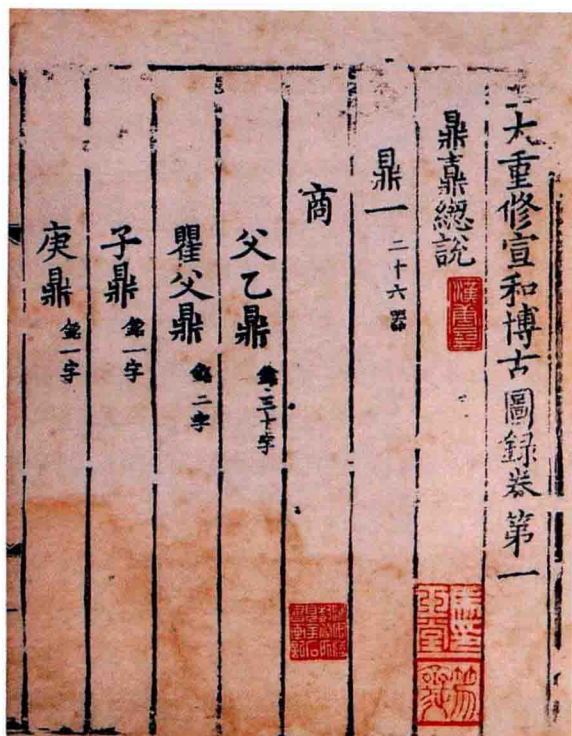 至大重修宣和博古圖錄卷第一
鼎鼒總說
漢唐齋
鼎一 二十六器
商
父乙鼎 銘三十字
瞿父鼎 銘二字
子鼎 銘一字
庚鼎 銘一字
笏齋